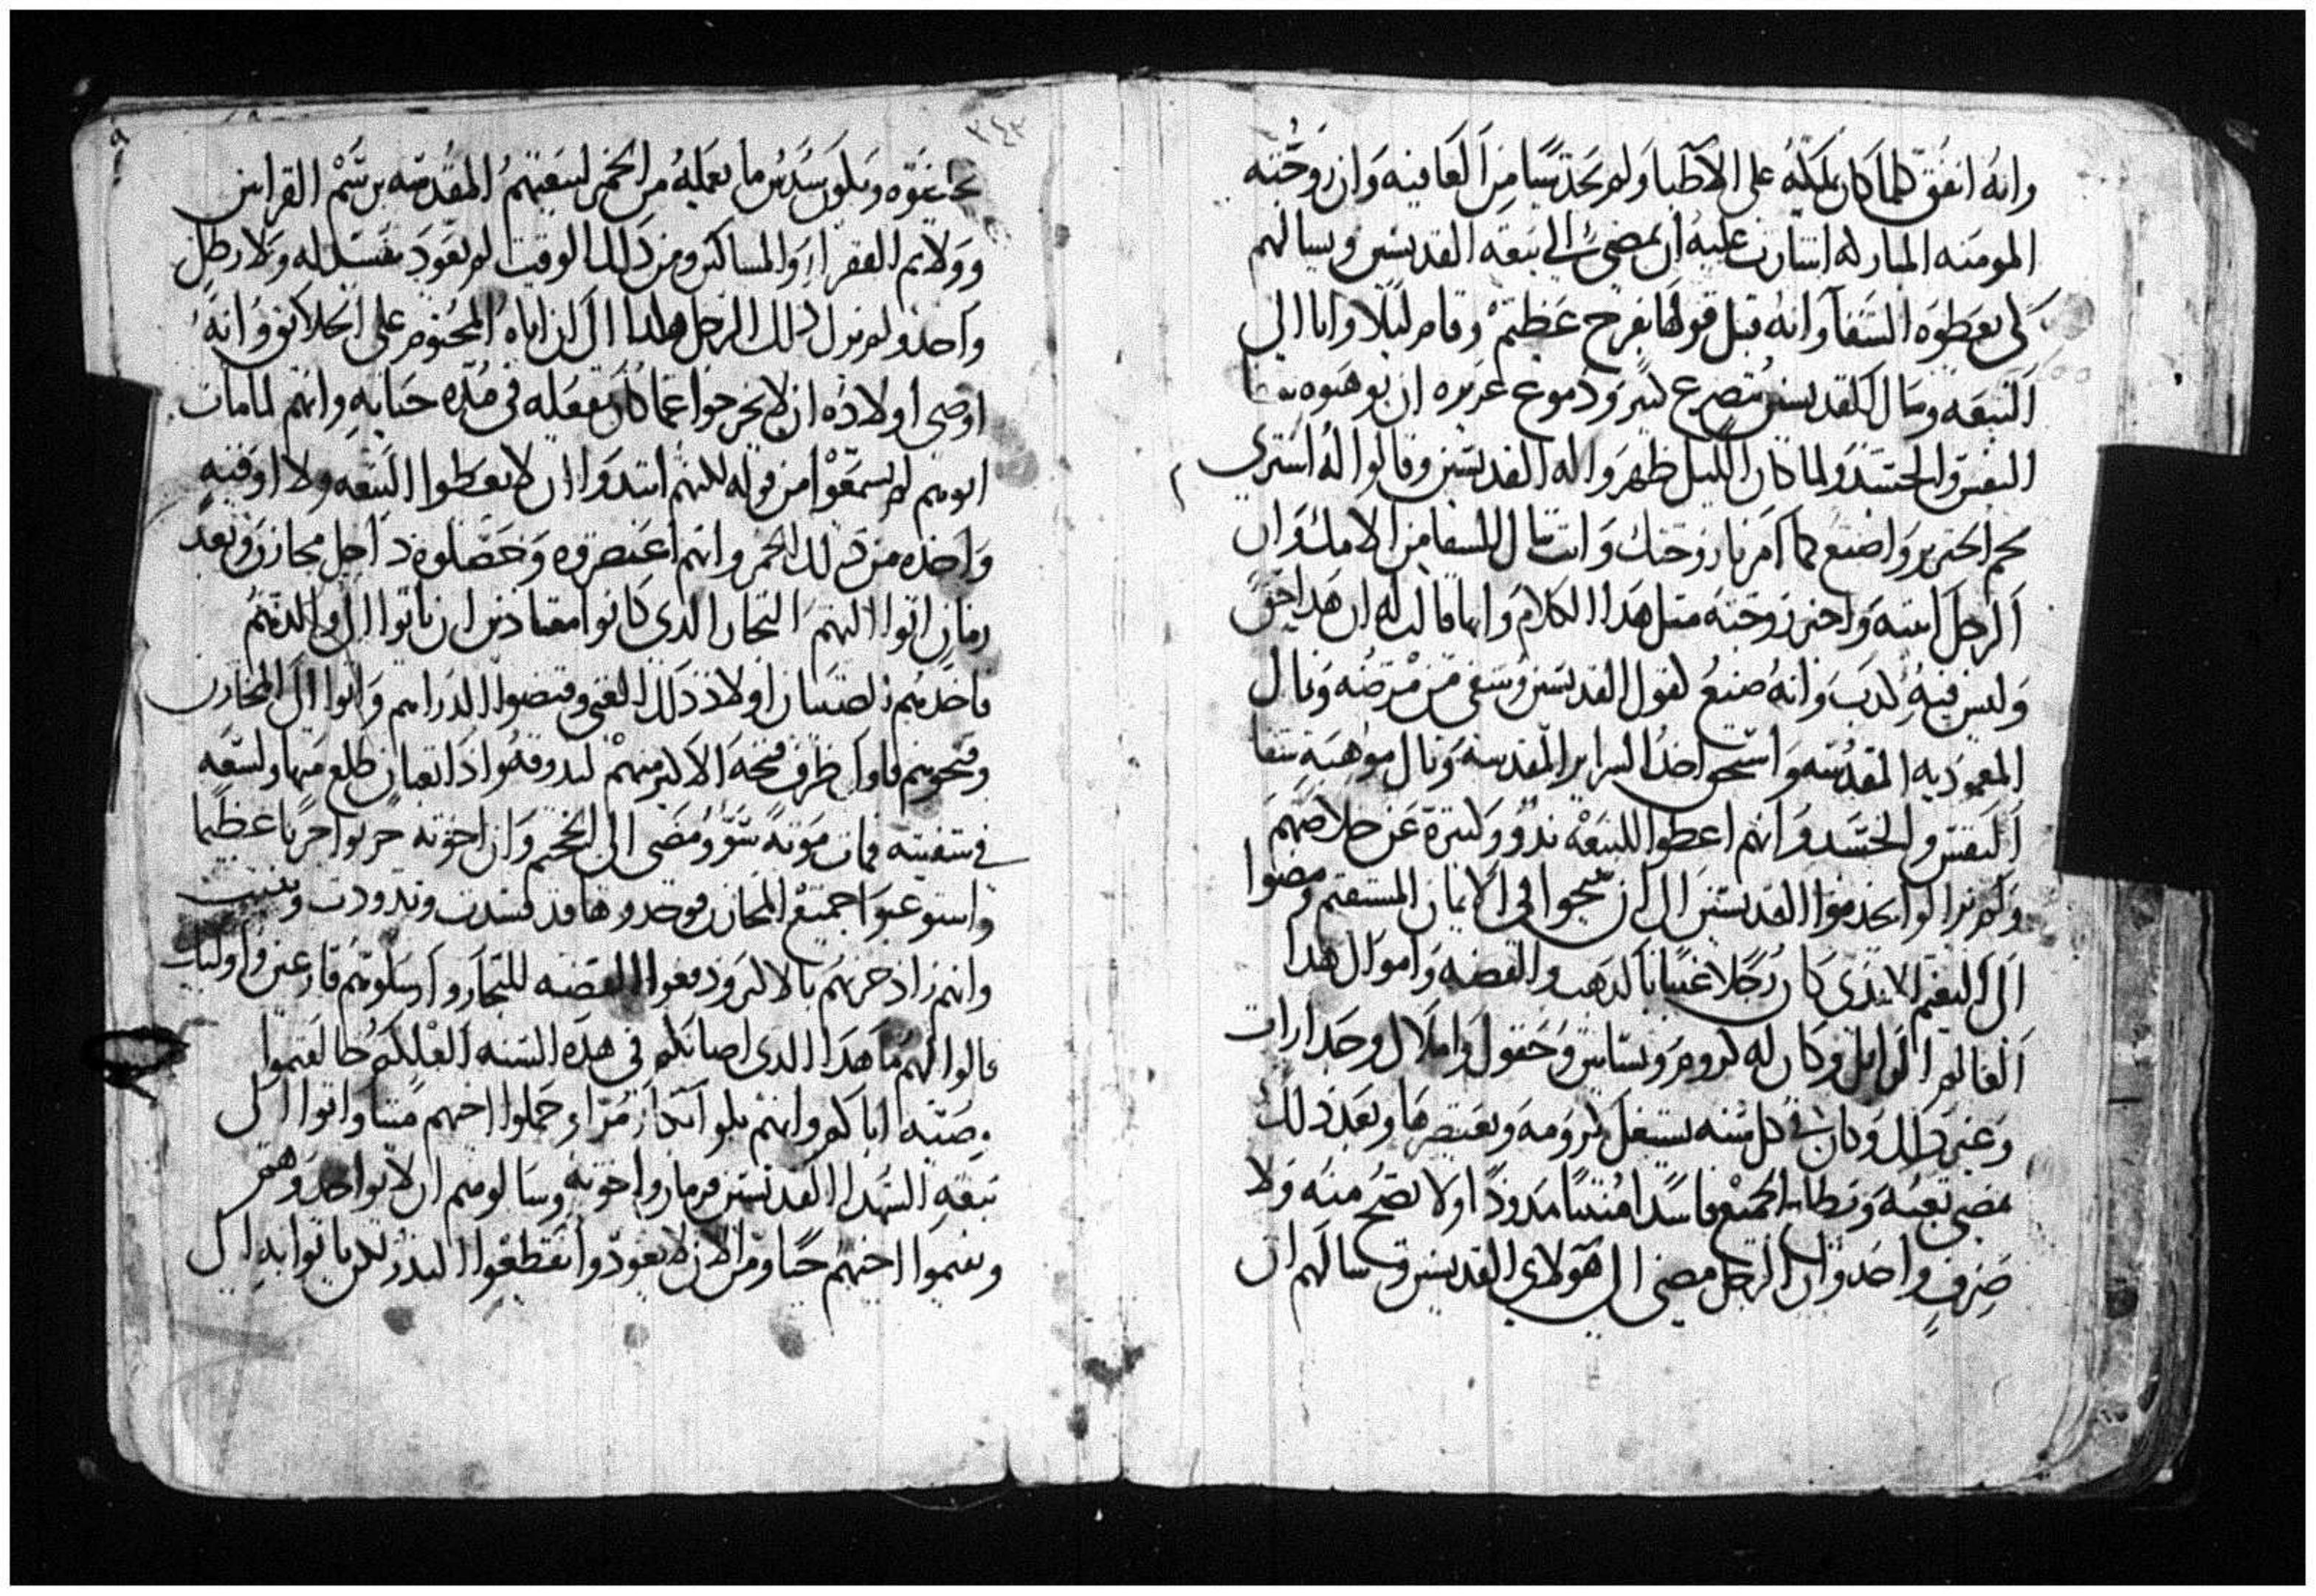 وانه انفق كلما كان يملكه على الاطبا ولم يجد شيا من العافيه وان زوجته
المومنه المباركه اشارت عليه ان يمضي الي بيعة القديسين ويسالهم
لكي يعطوه الشفا وانه قبل قولها بفرح عظيم وقام ليلا واتا الي
البيعه وسال القديسين بتضرع كتير ودموع غزيره ان يوهبوه
النفس والجسد ولما كان الليل ظهروا له القديسين وقالوا له اشتري
لحم الخنزير واصنع كما امرتك زوجتك وانت تنال الشفا من الامك وان
الرجل انتبه واخبر زوجته بمثل هدا الكلام وانها قالت له ان هدا حق
وليس فيه كدب وانه صنع كقول القديسين وشفي من مرضه ونال
المعموديه المقدسه واستحق اخد السراير المقدسه ونال موهبة شفا
النفس والجسد وانهم اعطوا للبيعه ندور كتيرة عن خلاصهم
ولم يزالوا يخدموا القديسين الى ان تنيحوا في الايمان المستقيم ومضوا
الى النعيم الابدي كان رجلا غنيا بالدهب والفضه واموال هدا
العالم الزايل وكان له كروم وبساتين وحقول واملاك وجدارات
وغير دلك وكان في كل سنه يستغل كرومه ويعتصرها وبعد دلك
يمضي تعبه ويطلع الجميع فاسدا منتنا مدودا ولا يصح منه ولا
ضرف واحد وان الرجل مضى الى هولاي القديسين وسالهم ان
٣٤٣
ويكون سدس ما يعمله من الخمر لبيعتهم المقدسه برسم القرابين
وولايم الفقرا والمساكين ومن دلك الوقت لم يعود يفسد له ولا رطل
واحد ولم يزل دلك الرجل هكدا الى ان اتاه المحتوم على الخلايق وانه
اوصى اولاده ان لا يخرجوا عما كان يفعله في مدة حياته وانهم لما مات
ابوهم لم يسمعوا من قوله لكنهم ابتدوا ان لا يعطوا البيعه ولا اوقيه
واحده من دلك الخمر وانهم اعتصروه وحصلوه داخل مخازن وبعد
زمان اتوا اليهم التجار الدي كانوا معتادين ان ياتوا الى والدهم
فاخدهم اولاد دلك الغني وقبضوا الدراهم واتوا الى المخازن
وفتحوهم فاول ظرف فتحه الاكبر منهم ليدوقه وادا تعبان طلع منها ولسعه
في شفتيه فمات موته سو ومضى الى الجحيم وان اخوته حزنوا حزنا عظيما
واستوعبوا جميع المخازن فوجدوها قد فسدت وتدودت ونتنت
وانهم زاد حزنهم بالاكتر ودفعوا الفضه للتجار وارسلوهم فارغين واوليك
قالوا لهم ما هدا الدي اصابكم في هده السنه العلكم خالفتموا
وصية اباكم وانهم بكوا بكا مرا وحملوا اخيهم ميتا واتوا الى
بيعة الشهدا القديسين قزمان واخوته وسالوهم ان لا يواخدوهم
ويقيموا اخيهم حيا ومن الان لا يعود وا يقطعوا الندر بل ياتوا به الى